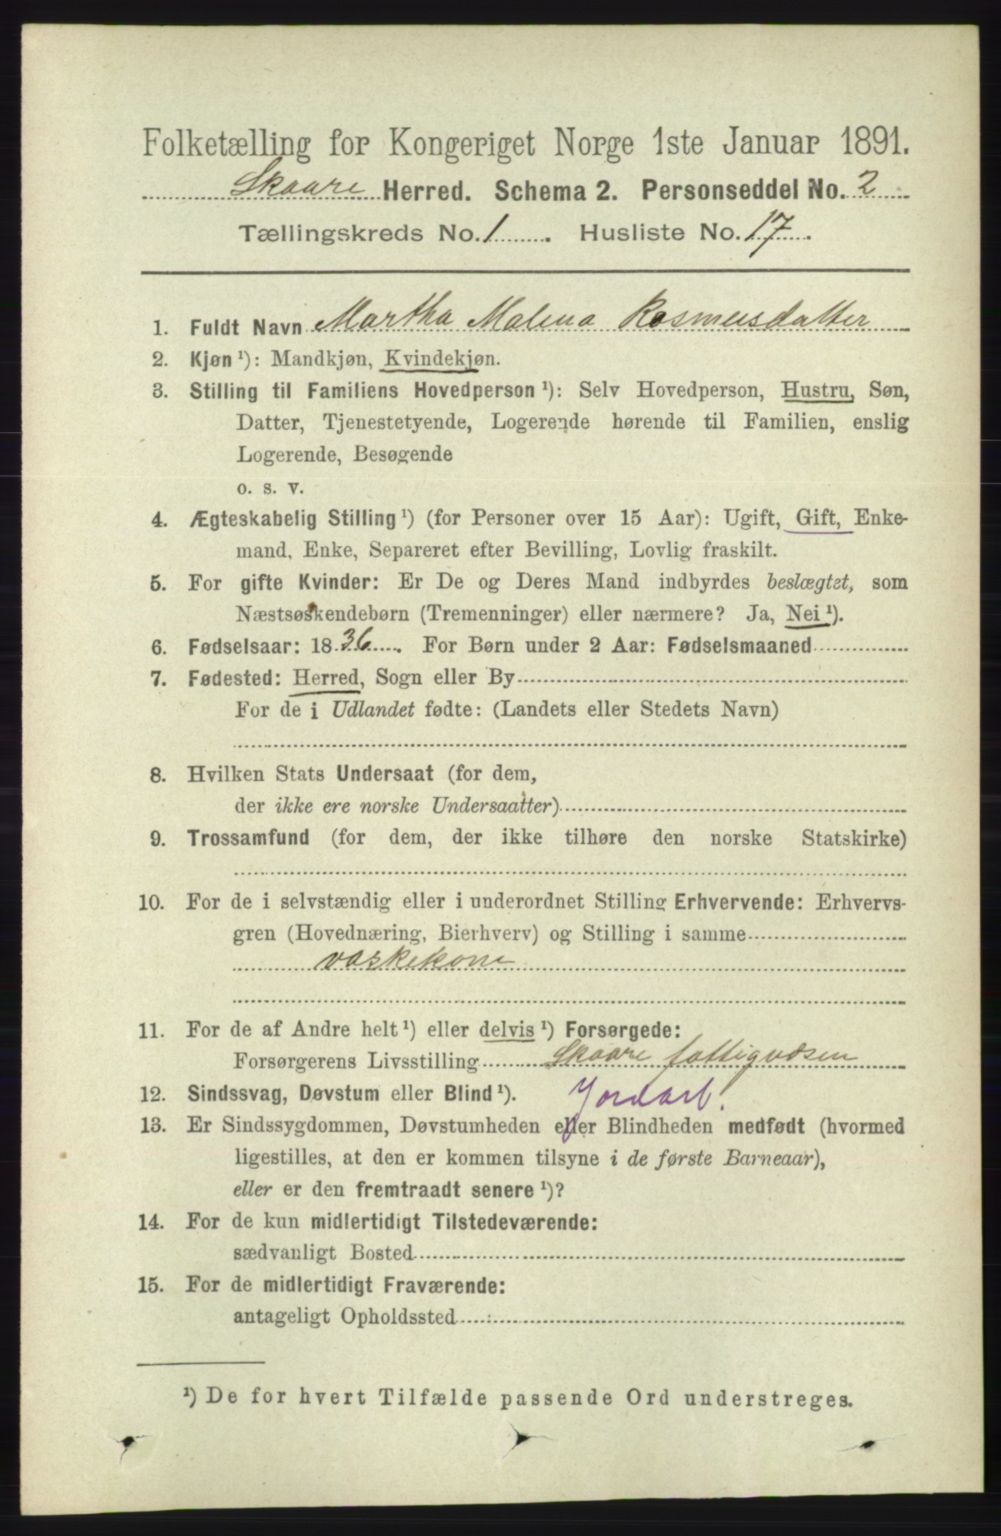 Folketælling for Kongeriget Norge 1ste Januar 1891.
Skaare Herred. Schema 2. Personseddel No. 2
Tællingskreds No. 1. Husliste No. 17.
1. Fuldt Navn Martha Malena Rasmeusdatter
2. Kjøn ¹): Mandkjøn, Kvindekjøn.
3. Stilling til Familiens Hovedperson ¹): Selv Hovedperson, Hustru, Søn,
Datter, Tjenestetyende, Logerende hørende til Familien, enslig
Logerende, Besøgende
o. s. v.
4. Ægteskabelig Stilling ¹) (for Personer over 15 Aar): Ugift, Gift, Enke-
mand, Enke, Separeret efter Bevilling, Lovlig fraskilt.
5. For gifte Kvinder: Er De og Deres Mand indbyrdes beslægtet, som
Næstsøskendebørn (Tremenninger) eller nærmere? Ja, Nei ¹).
6. Fødselsaar: 1836. For Børn under 2 Aar: Fødselsmaaned
7. Fødested: Herred, Sogn eller By
For de i Udlandet fødte: (Landets eller Stedets Navn)
8. Hvilken Stats Undersaat (for dem,
der ikke ere norske Undersaatter)
9. Trossamfund (for dem, der ikke tilhøre den norske Statskirke)
10. For de i selvstændig eller i underordnet Stilling Erhvervende: Erhvervs-
gren (Hovednæring, Bierhverv) og Stilling i samme
vaskekone
11. For de af Andre helt ¹) eller delvis ¹) Forsørgede:
Forsørgerens Livsstilling Skaare fattigvæsen
12. Sindssvag, Døvstum eller Blind ¹). Jordarb.
13. Er Sindssygdommen, Døvstumheden eller Blindheden medfødt (hvormed
ligestilles, at den er kommen tilsyne i de første Barneaar),
eller er den fremtraadt senere ¹)?
14. For de kun midlertidigt Tilstedeværende:
sædvanligt Bosted
15. For de midlertidigt Fraværende:
antageligt Opholdssted
¹) De for hvert Tilfælde passende Ord understreges.